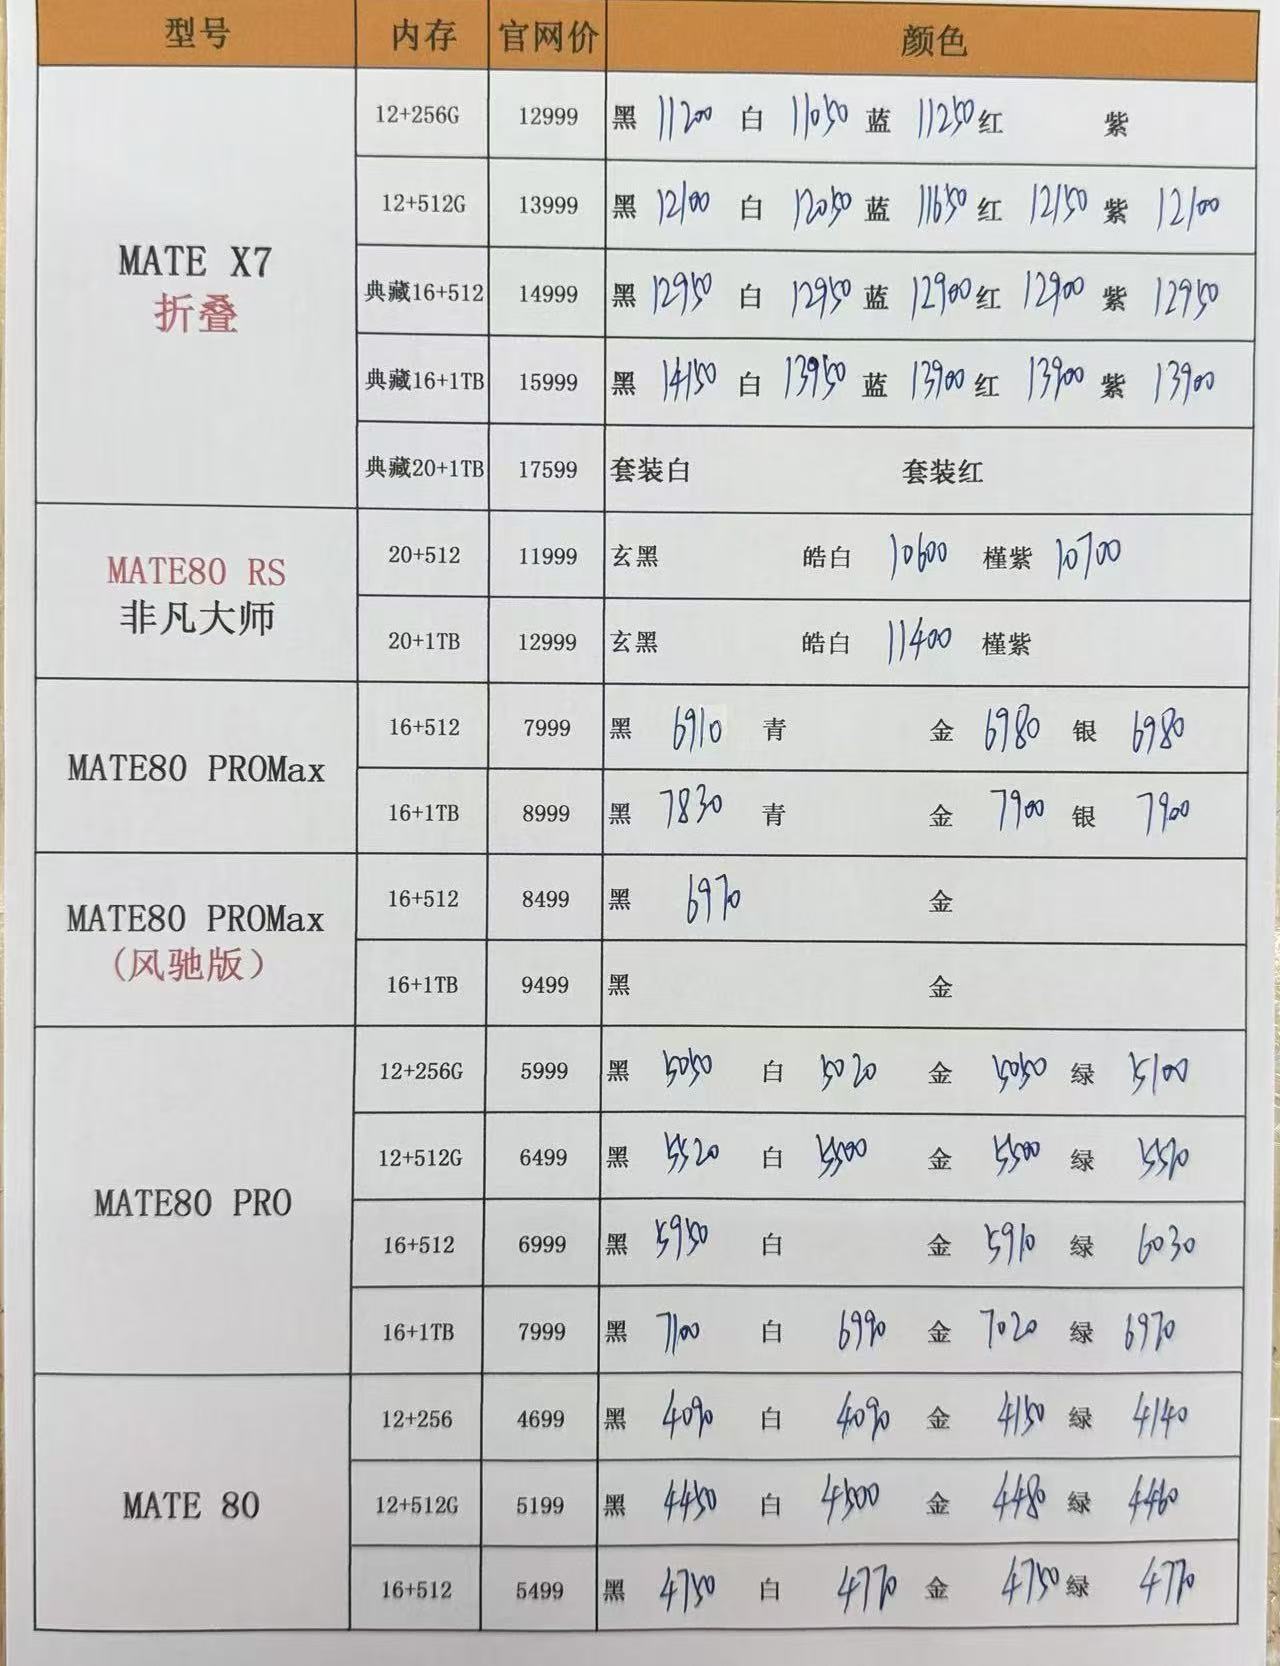 型号 内存 官网价 颜色
12+256G 12999 黑 11200 白 11050 蓝 11250 红 紫
12+512G 13999 黑 12100 白 12050 蓝 11650 红 12150 紫 12100
MATE X7
折叠
典藏16+512 14999 黑 12950 白 12950 蓝 12900 红 12900 紫 12950
典藏16+1TB 15999 黑 14150 白 13950 蓝 13900 红 13900 紫 13900
典藏20+1TB 17599 套装白 套装红
MATE80 RS
非凡大师
20+512 11999 玄黑 皓白 10600 槿紫 10700
20+1TB 12999 玄黑 皓白 11400 槿紫
MATE80 PROMax
16+512 7999 黑 6910 青 金 6980 银 6980
16+1TB 8999 黑 7830 青 金 7900 银 7900
MATE80 PROMax
(风驰版)
16+512 8499 黑 6970 金
16+1TB 9499 黑 金
MATE80 PRO
12+256G 5999 黑 5050 白 5020 金 5050 绿 5100
12+512G 6499 黑 5520 白 5500 金 5500 绿 5520
16+512 6999 黑 5950 白 金 5910 绿 6030
16+1TB 7999 黑 7100 白 6990 金 7020 绿 6970
MATE 80
12+256 4699 黑 4090 白 4090 金 4150 绿 4140
12+512G 5199 黑 4450 白 4500 金 4480 绿 4460
16+512 5499 黑 4750 白 4770 金 4750 绿 4770